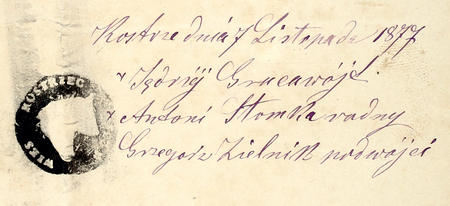 Kostrze dnia 7 Listopada 1877
x Jędrzij Graca wójt.
x Antoni Słomka radny
Grzegorz Zielnik podwójci
WIES KOSTRZEC